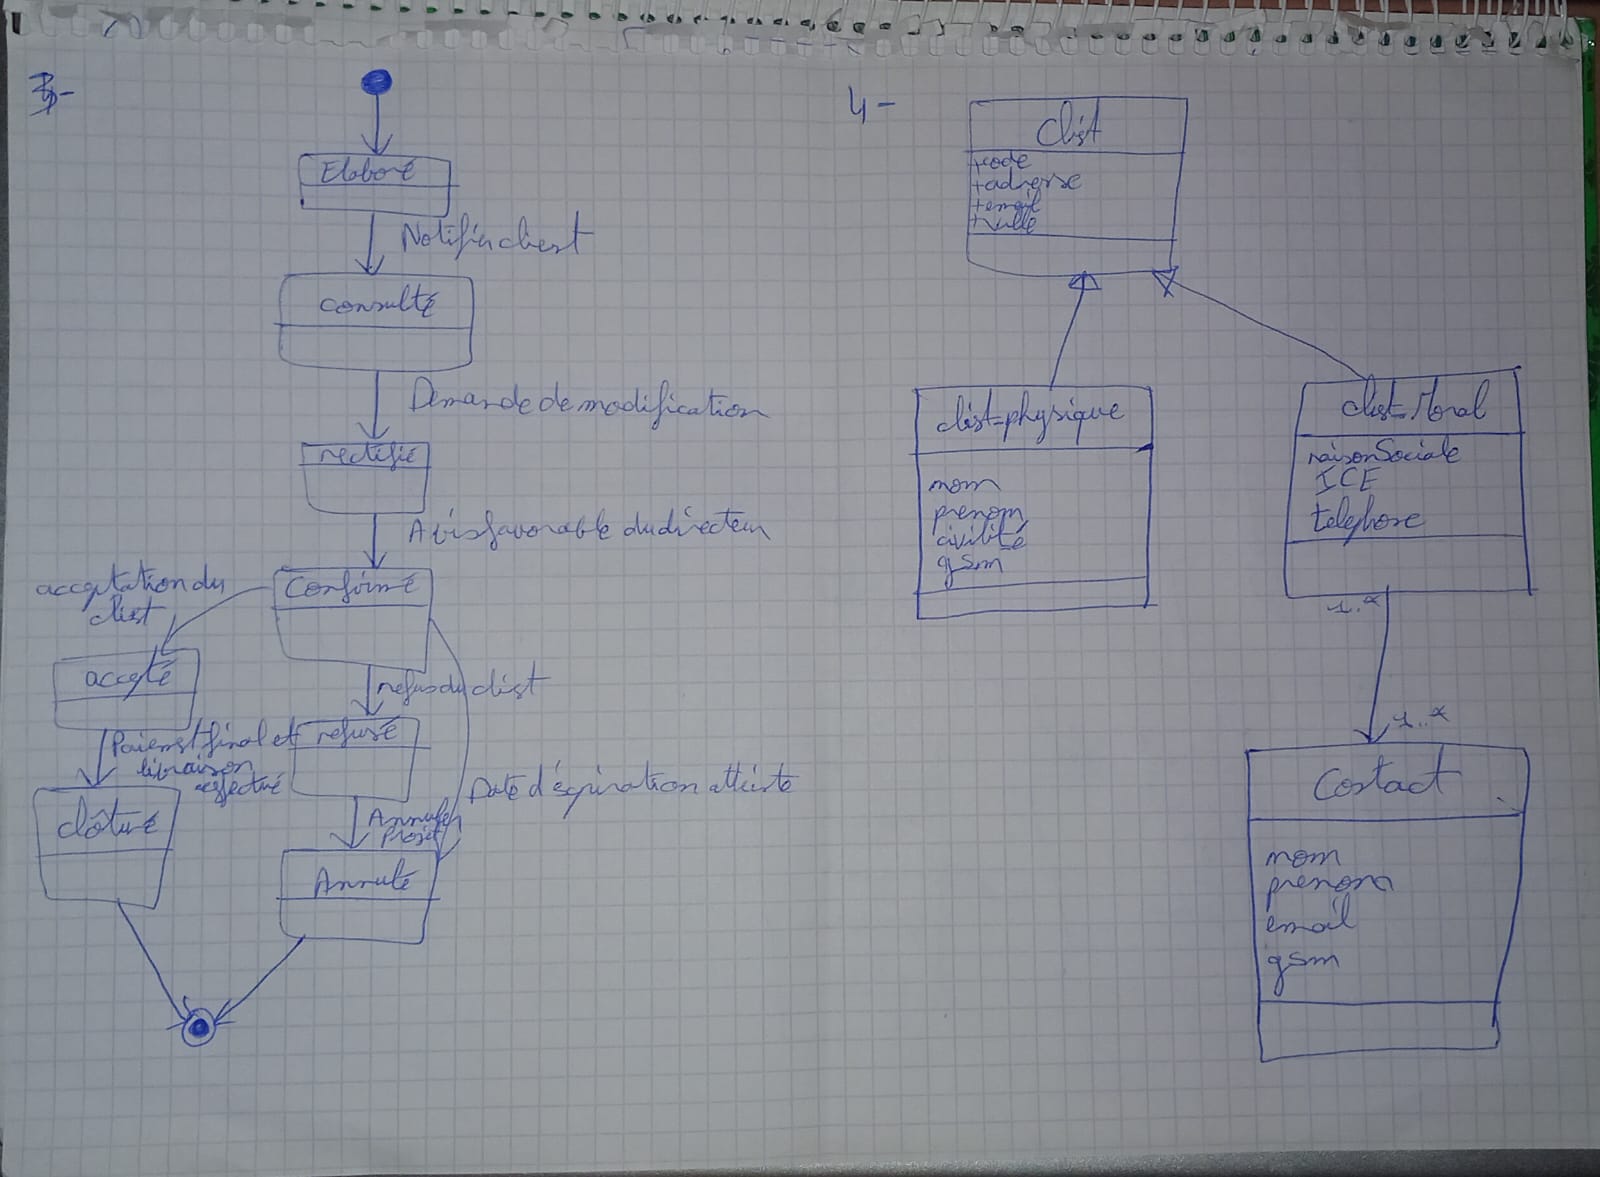 3-
Elaboré
Notifier client
consulté
Demande de modification
rectifié
Avis favorable du directeur
Confirmé
acceptation du
client
accepté
refus du client
Paiement final et
livraison
effectué
refusé
Date d'éxpiration atteinte
Annuler
Projet
clôturé
Annulé
4-
Client
+code
+adresse
+email
+ville
client_physique
nom
prenom
civilité
gsm
client_Moral
raisonSociale
ICE
telephone
1..*
1..*
Contact
nom
prenom
email
gsm